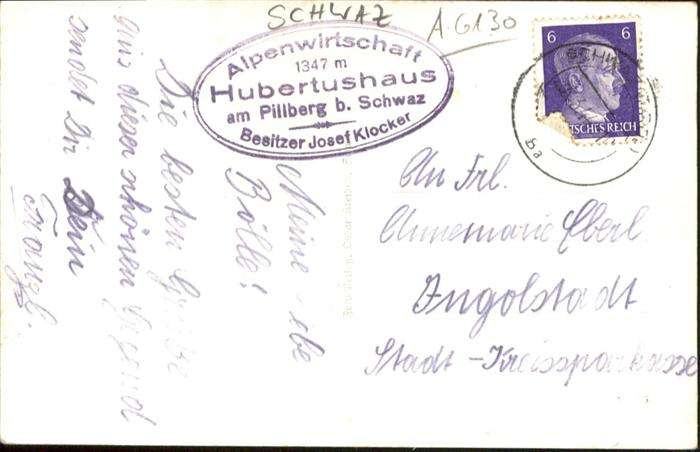 SCHWAZ
A. 6130
Alpenwirtschaft
1347 m
Hubertushaus
am Pillberg b. Schwaz
Besitzer Josef Klocker
6 6
DEUTSCHES REICH
Meine liebe
Bölle!
Die besten Grüße
aus dieser schönen Gegend
sendet Dir Dein
Franzl.
An Frl.
Annemarie Eberl
Ingolstadt
Stadt-Kreissparkasse